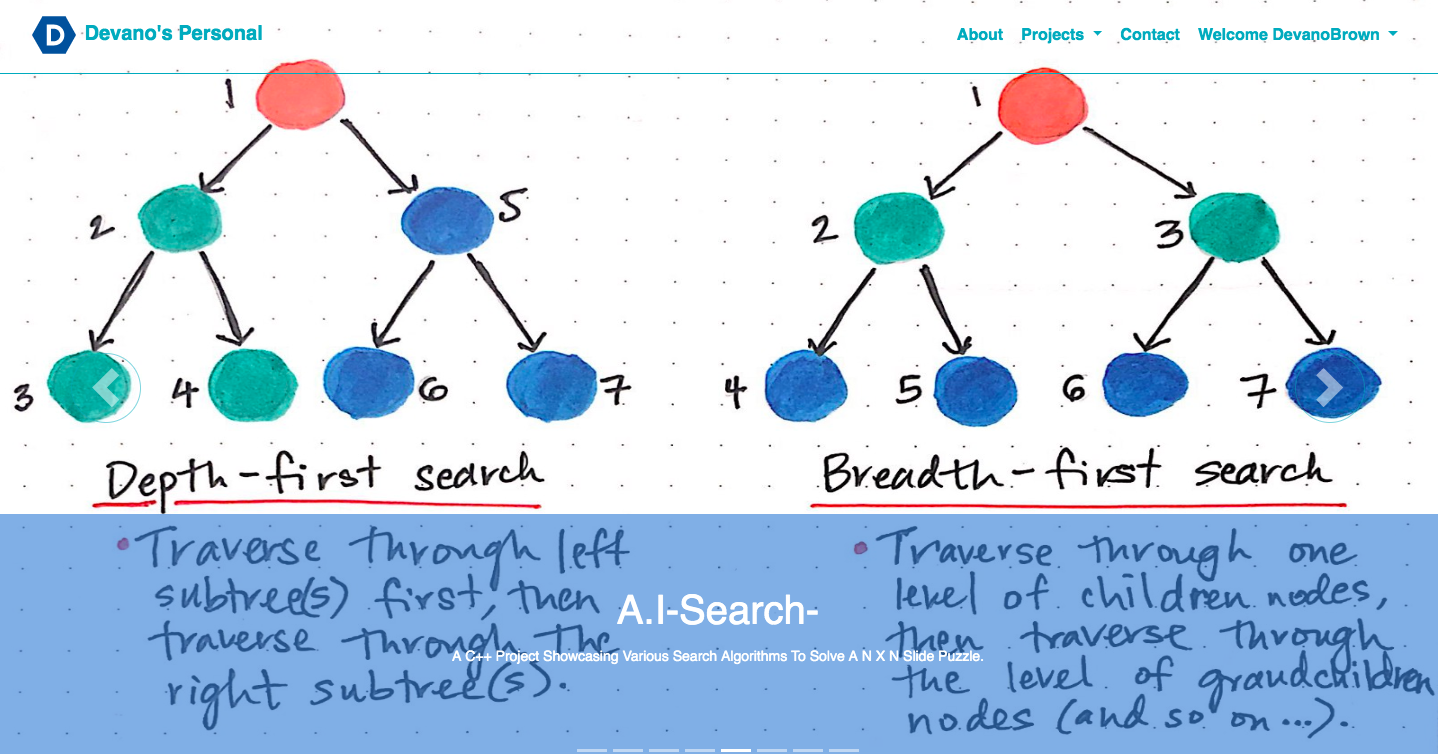 D Devano's Personal
About Projects Contact Welcome DevanoBrown
1 1
2 5 2 3
3 4 6 7 4 5 6 7
Depth-first search
Breadth-first search
• Traverse through left
subtree(s) first, then
traverse through the
right subtree(s).
• Traverse through one
level of children nodes,
then traverse through
the level of grandchildren
nodes (and so on...).
A.I-Search-
A C++ Project Showcasing Various Search Algorithms To Solve A N X N Slide Puzzle.